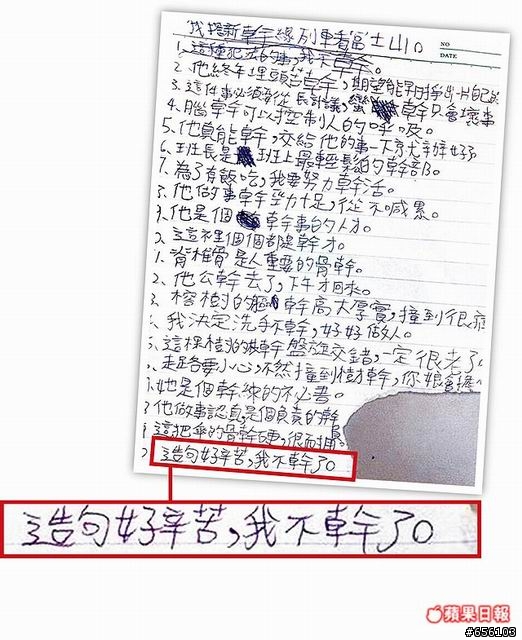 我搭新幹線列車看富士山。
NO
DATE
1.這種犯法的事,我不幹。
2.他終年埋頭苦幹,期望能早日掙出一片自己的
3.這件事必須從長計議,蠻幹只會壞事
4.腦幹可以控制人的呼吸。
5.他真能幹,交給他的事一下就辦好了
6.班長是班上最輕鬆的幹部。
7.為了有飯吃,我要努力幹活。
8.他做事幹勁十足,從不喊累。
9.他是個幹事的人才。
這裡個個都是幹才。
1.脊椎骨是人重要的骨幹。
2.他公幹去了,下午才回來。
3.榕樹的軀幹高大厚實,撞到很痛
我決定洗手不幹,好好做人。
5.這棵樹的樹幹盤旋交錯,一定很老了
走路要小心,不然撞到樹幹,你
她是個幹練的秘書。
他做事認真是個負責的幹
這把傘的骨幹硬,很耐
造句好辛苦,我不幹了。
造句好辛苦,我不幹了。
蘋果日報
#656103